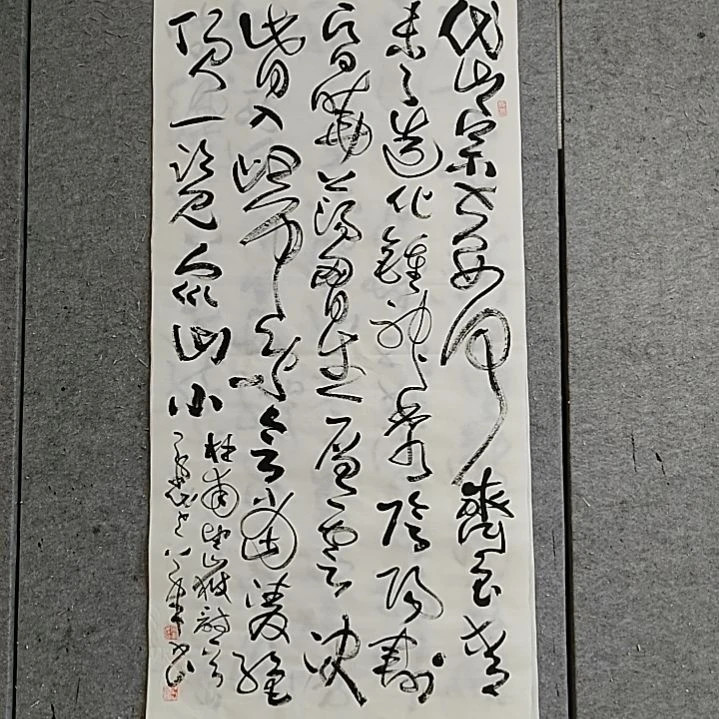 岱宗夫如何齊魯青
未了造化鍾神秀陰陽割
昏曉蕩胸生層雲決
眥入歸鳥會當凌絕
頂一覽眾山小
杜甫望嶽詩一首